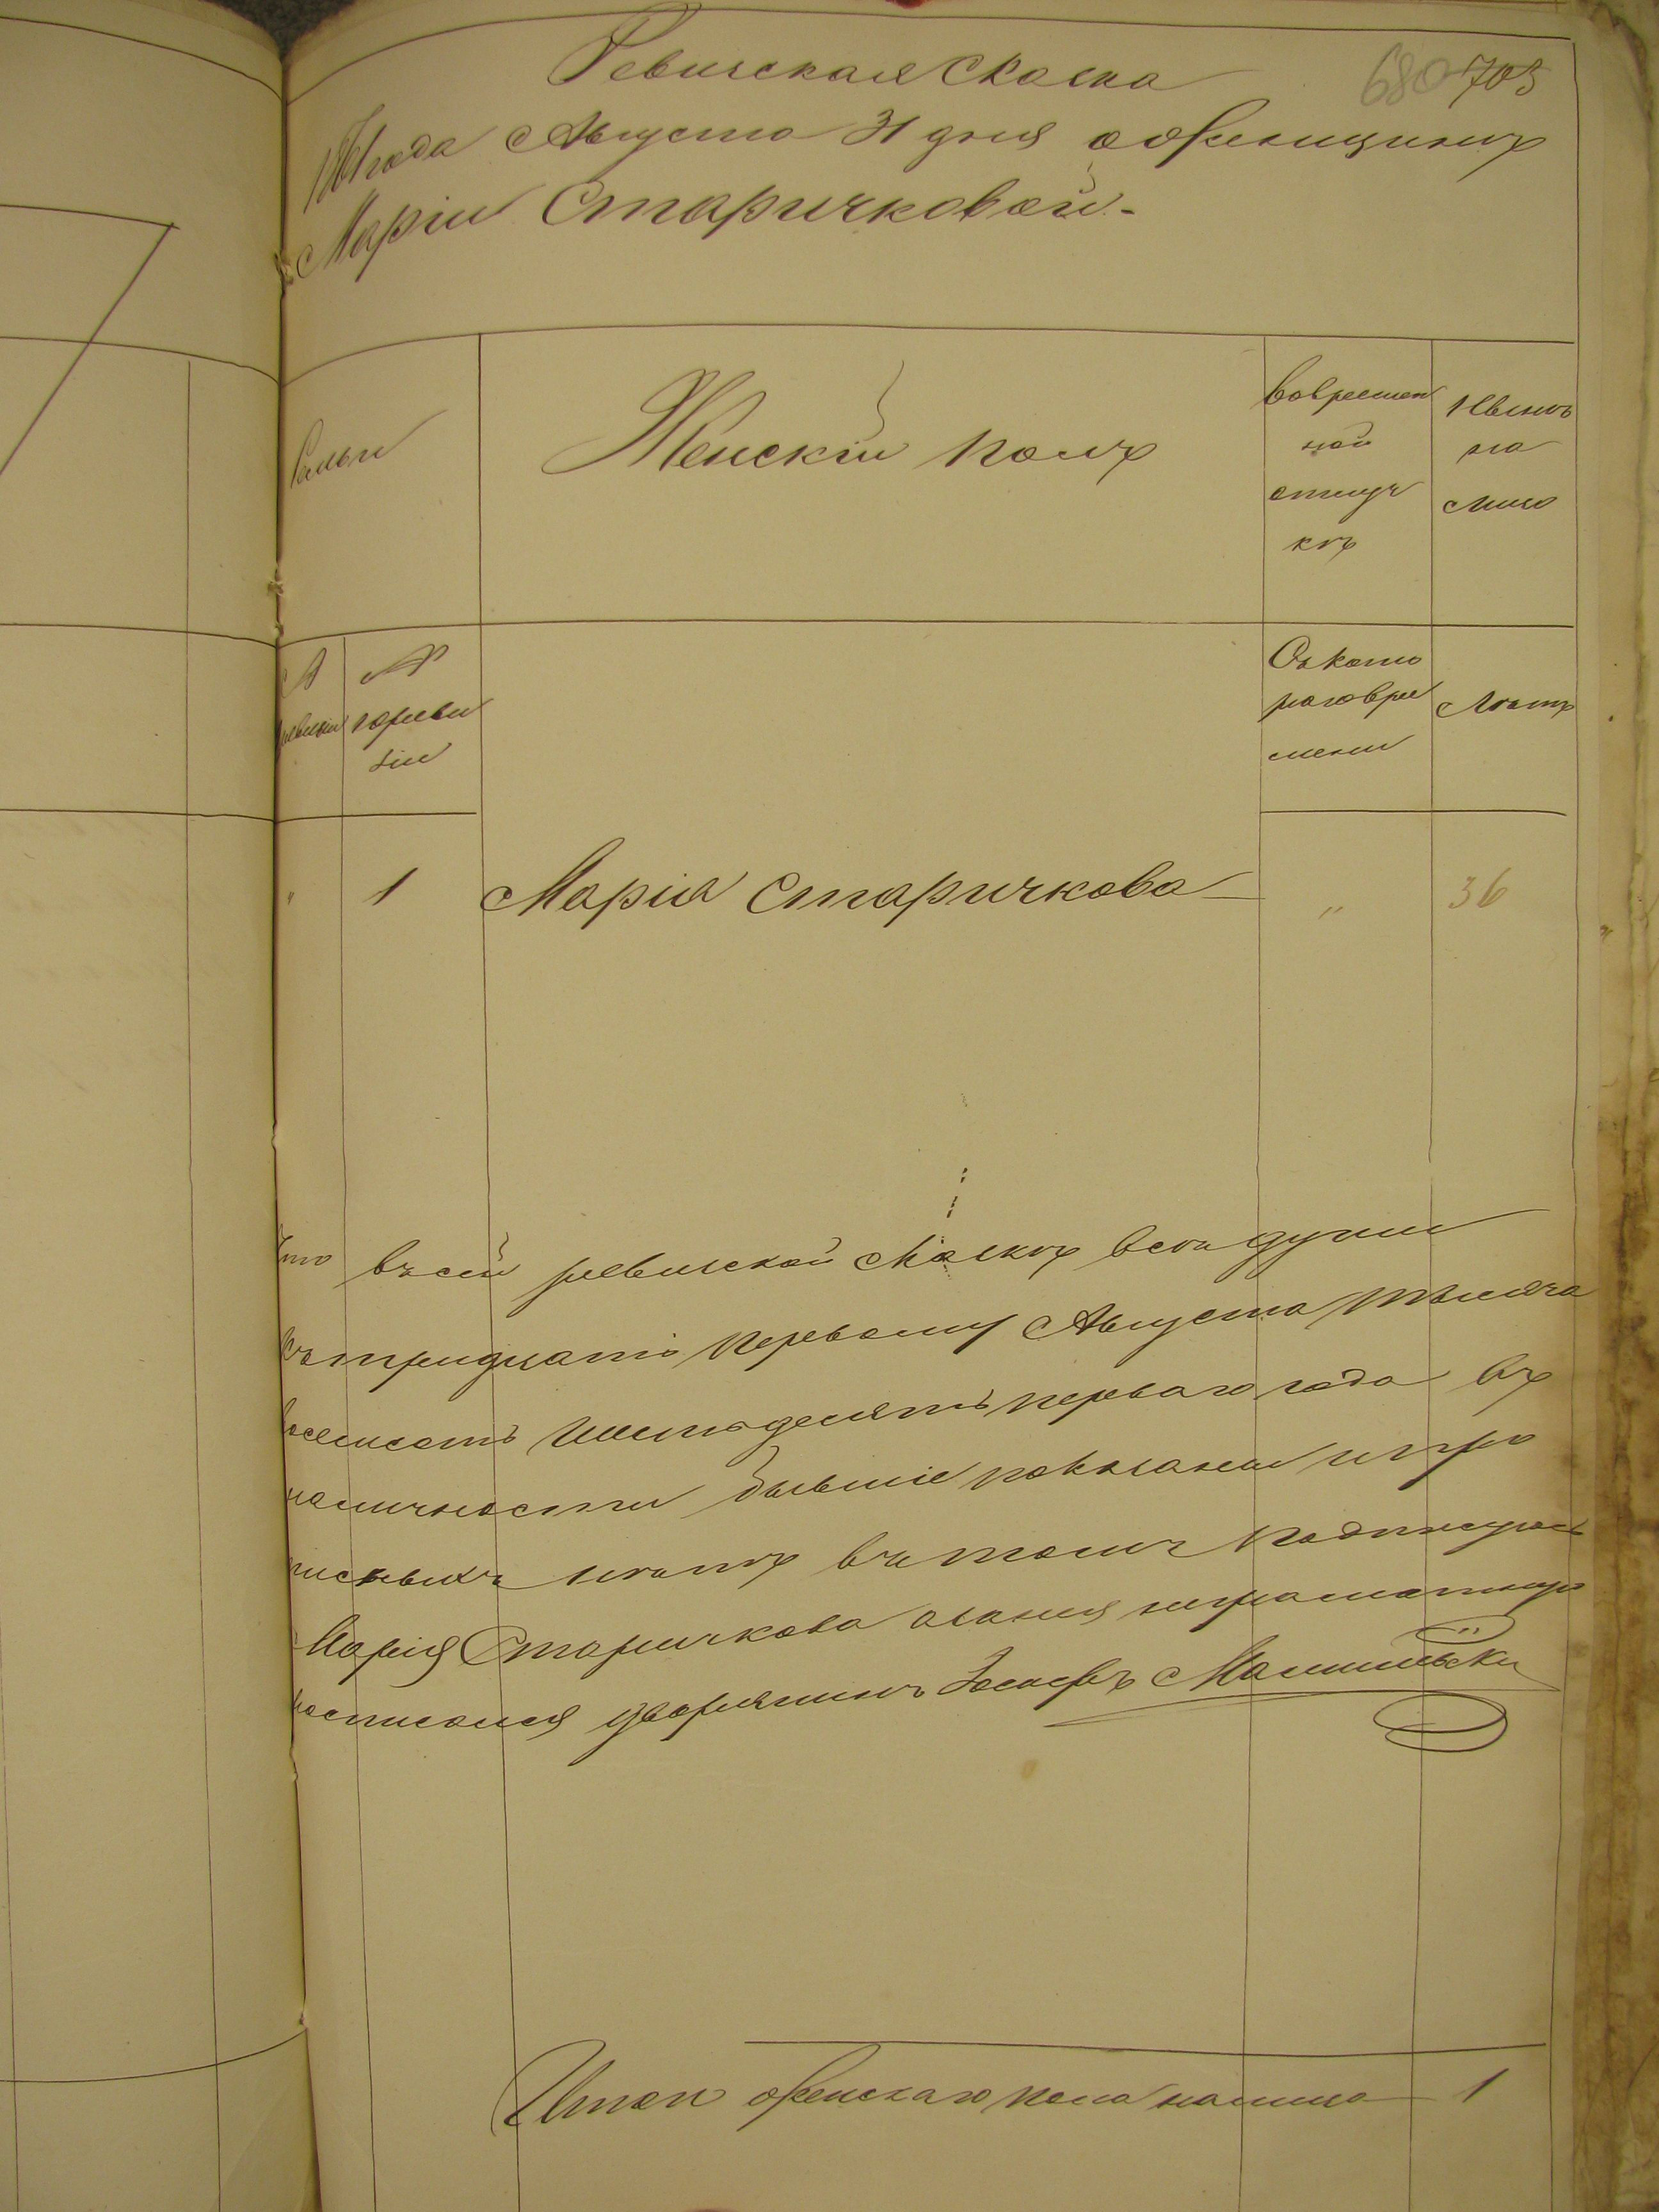 Ревизская Сказка
680 703
1861 года Августа 31 дня о женщинѣ
Маріи Старичковой.
Семьи
Женскій полъ
Во времен
ной
отлуч
кѣ
И вновь
на
лицо
№
ревизіи
№
по реви
зіи
Съ кото
раго вре
мени
Лѣтъ
" 1 Марія Старичкова " 36
Что въ сей ревизской сказкѣ всѣ души
къ тридцать первому Августа мѣсяца
восемсотъ шестьдесятъ перваго года въ
наличности бывшіе показаны и про
писныхъ нѣтъ въ томъ подписуюсь
Марія Старичкова а за нея неграматную
росписался дворянинъ Іосифъ
Итого женскаго пола налицо 1